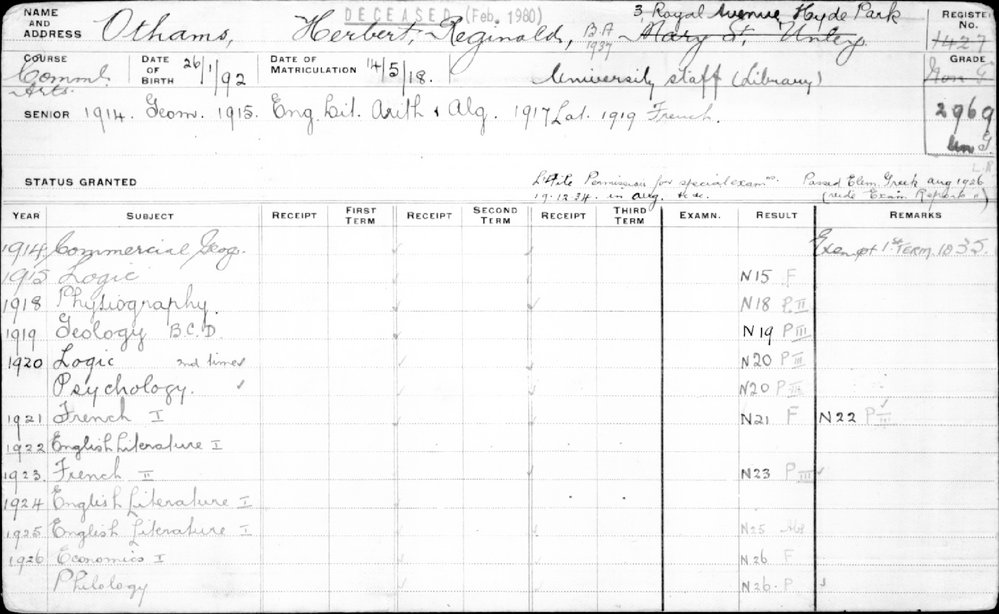 NAME AND ADDRESS Othams, Herbert, Reginald, B.A 1937
DECEASED (Feb. 1980)
3, Royal Avenue Hyde Park
Mary St. Unley.
REGISTER No. 1427
COURSE Comml. Arts.
DATE OF BIRTH 26/1/92
DATE OF MATRICULATION 14/5/18.
University staff (Library)
GRADE
2969
SENIOR 1914. Geom. 1915. Eng. Lit. Arith & Alg. 1917 Lat. 1919 French.
STATUS GRANTED
Permission for special exam
19.12.34. in Aug.
Passed Elem. Greek Aug 1926
(vide Exam. Reports)
YEAR SUBJECT RECEIPT FIRST TERM RECEIPT SECOND TERM RECEIPT THIRD TERM EXAMN. RESULT REMARKS
1914 Commercial Geog. Exempt 1st TERM. 1835.
1915 Logic N15 F
1918 Physiography. N18 P II
1919 Geology B.C.D. N19 P III
1920 Logic 2nd time N20 P III
Psychology. N20 P III
1921 French I N21 F N22 P III
1922 English Literature I
1923. French II N23 P III
1924 English Literature I
1925 English Literature I N25
1926 Economics I N26 F
Philology N26. P